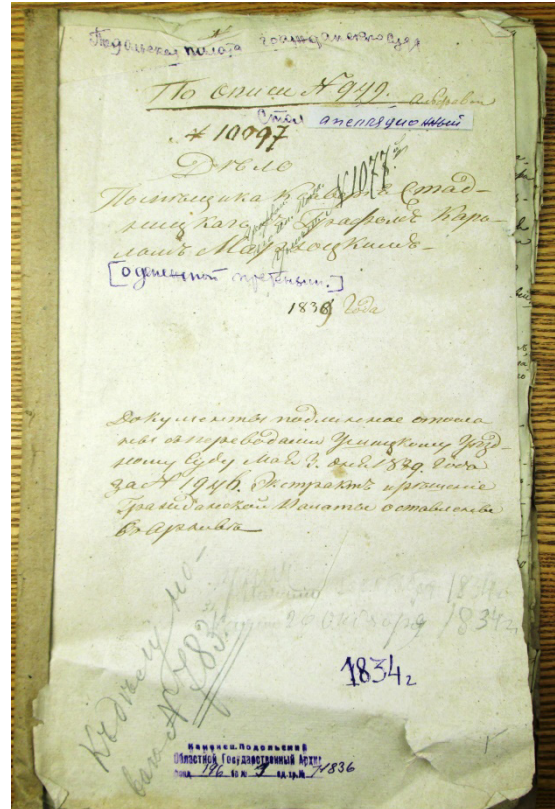 Подольская палата гражданского суда
По описи № 949.
Стол апелляционный
№ 10097
№ 1077.
Дѣло
Помѣщика Стад-
ницкаго съ Графомъ Каро-
ломъ
[о денежной претензии.]
1839 Года
Документы подлинные отосла
ны съ переводами Ушицкому Уѣзд-
ному Суду Мая 3. дня 1839. Года
за № 1946. Экстрактъ и рѣшение
Гражданской Палаты оставлены
въ Архивѣ
1834
26 Октября 1834 г.
1834 г
Къ дѣлу но-
№ 783.
Каменец-Подольский
Областной Государственный Архив
Фонд 196 оп № 1 ед. хр. № 71836